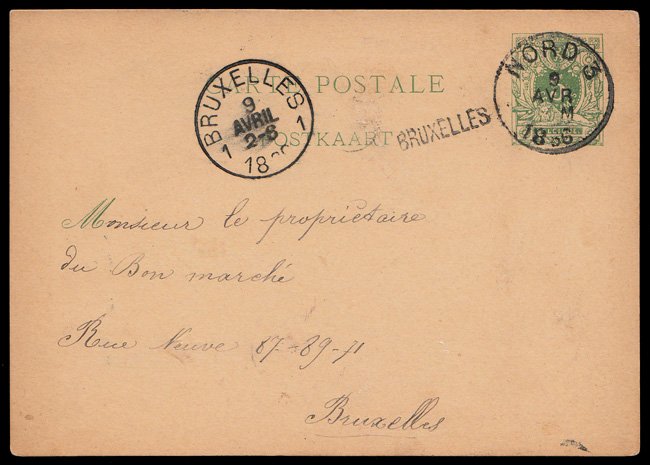 CARTE POSTALE
POSTKAART
BRUXELLES 1
9
AVRIL
2-S
1 18
BRUXELLES
NORD 3
9
AVR
M
1886
Monsieur le propriétaire
du Bon marché
Rue Neuve 87-89-71
Bruxelles